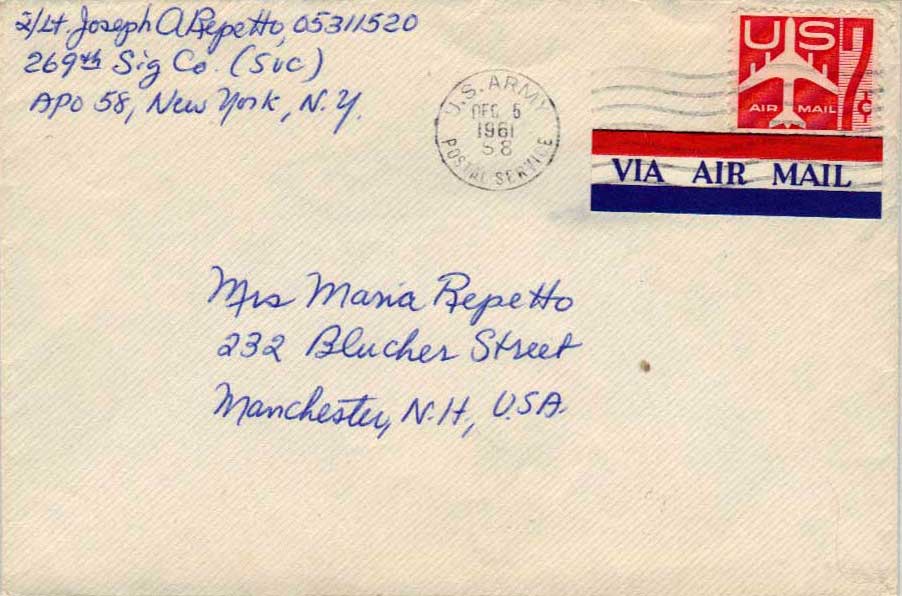 2/Lt. Joseph A Repetto, 05311520
269th Sig Co. (Svc)
APO 58, New York, N.Y.
U.S. ARMY
DEC 5
1961
58
POSTAL SERVICE
US
7¢
AIR MAIL
VIA AIR MAIL
Mrs Maria Repetto
232 Blucher Street
Manchester, N.H., USA.